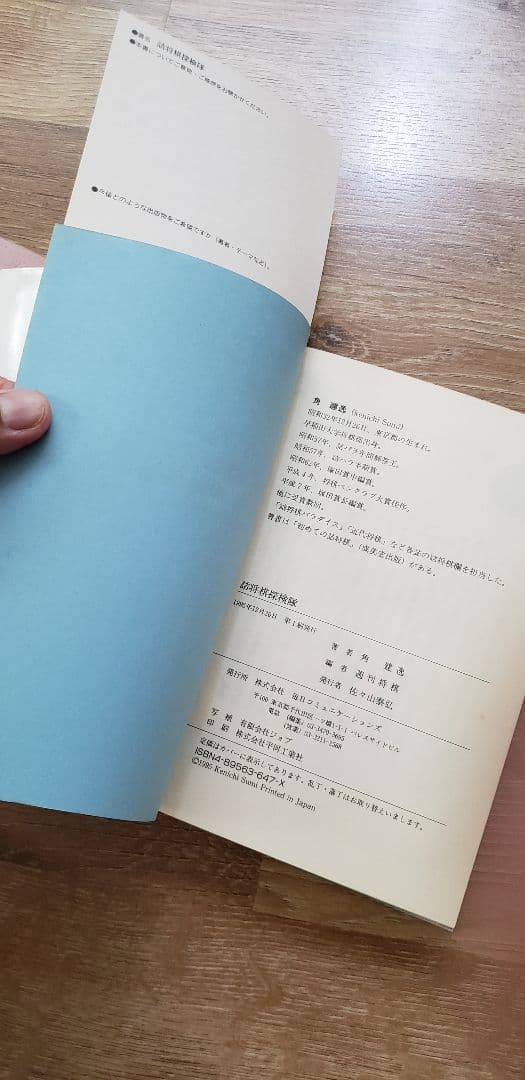 ●書名 詰将棋探検隊
●本書についてご意見・ご感想をお聞かせください。
●今後どのような出版物をご希望ですか（著者・テーマなど）。
角 建逸 (Kenichi Sumi)
昭和32年12月26日、東京都の生まれ。
早稲田大学将棋部出身。
昭和51年、詰パラ年間解答王。
昭和57年、詰パラ半期賞。
昭和62年、塚田賞中編賞。
平成4年、将棋ペンクラブ大賞佳作。
平成7年、塚田賞長編賞。
他に受賞数回。
「詰将棋パラダイス」「近代将棋」など各誌の詰将棋欄を担当した。
著書は「初めての詰将棋」（成美堂出版）がある。
詰将棋探検隊
1995年12月26日 第1刷発行
著者 角 建逸
編者 週刊将棋
発行者 佐々山泰弘
発行所 株式会社 毎日コミュニケーションズ
〒100 東京都千代田区一ツ橋1-1-1 パレスサイドビル
電話 (編集)
(営業) 03-3211-2568
写植 有限会社ジョブ
印刷 株式会社平河工業社
定価はカバーに表示してあります。乱丁・落丁はお取り替えいたします。
ISBN4-89563-647-X
©1995 Kenichi Sumi Printed in Japan